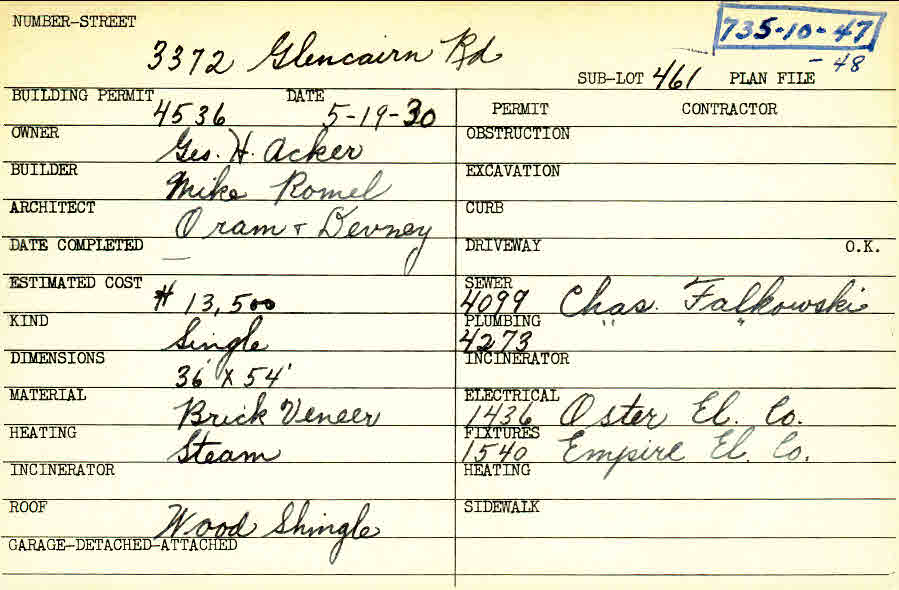 NUMBER-STREET
735-10-47
- 48
3372 Glencairn Rd
SUB-LOT 461 PLAN FILE
BUILDING PERMIT 4536 DATE 5-19-30
PERMIT CONTRACTOR
OWNER Geo. H. Acker
OBSTRUCTION
BUILDER Mike Romel
EXCAVATION
ARCHITECT Oram + Devney
CURB
DATE COMPLETED —
DRIVEWAY O.K.
ESTIMATED COST # 13,500
SEWER 4099 Chas. Falkowski
KIND Single
PLUMBING 4273 " "
DIMENSIONS 36' X 54'
INCINERATOR
MATERIAL Brick Veneer
ELECTRICAL 1436 Oster El. Co.
HEATING Steam
FIXTURES 1540 Empire El. Co.
INCINERATOR
HEATING
ROOF Wood Shingle
SIDEWALK
GARAGE-DETACHED-ATTACHED